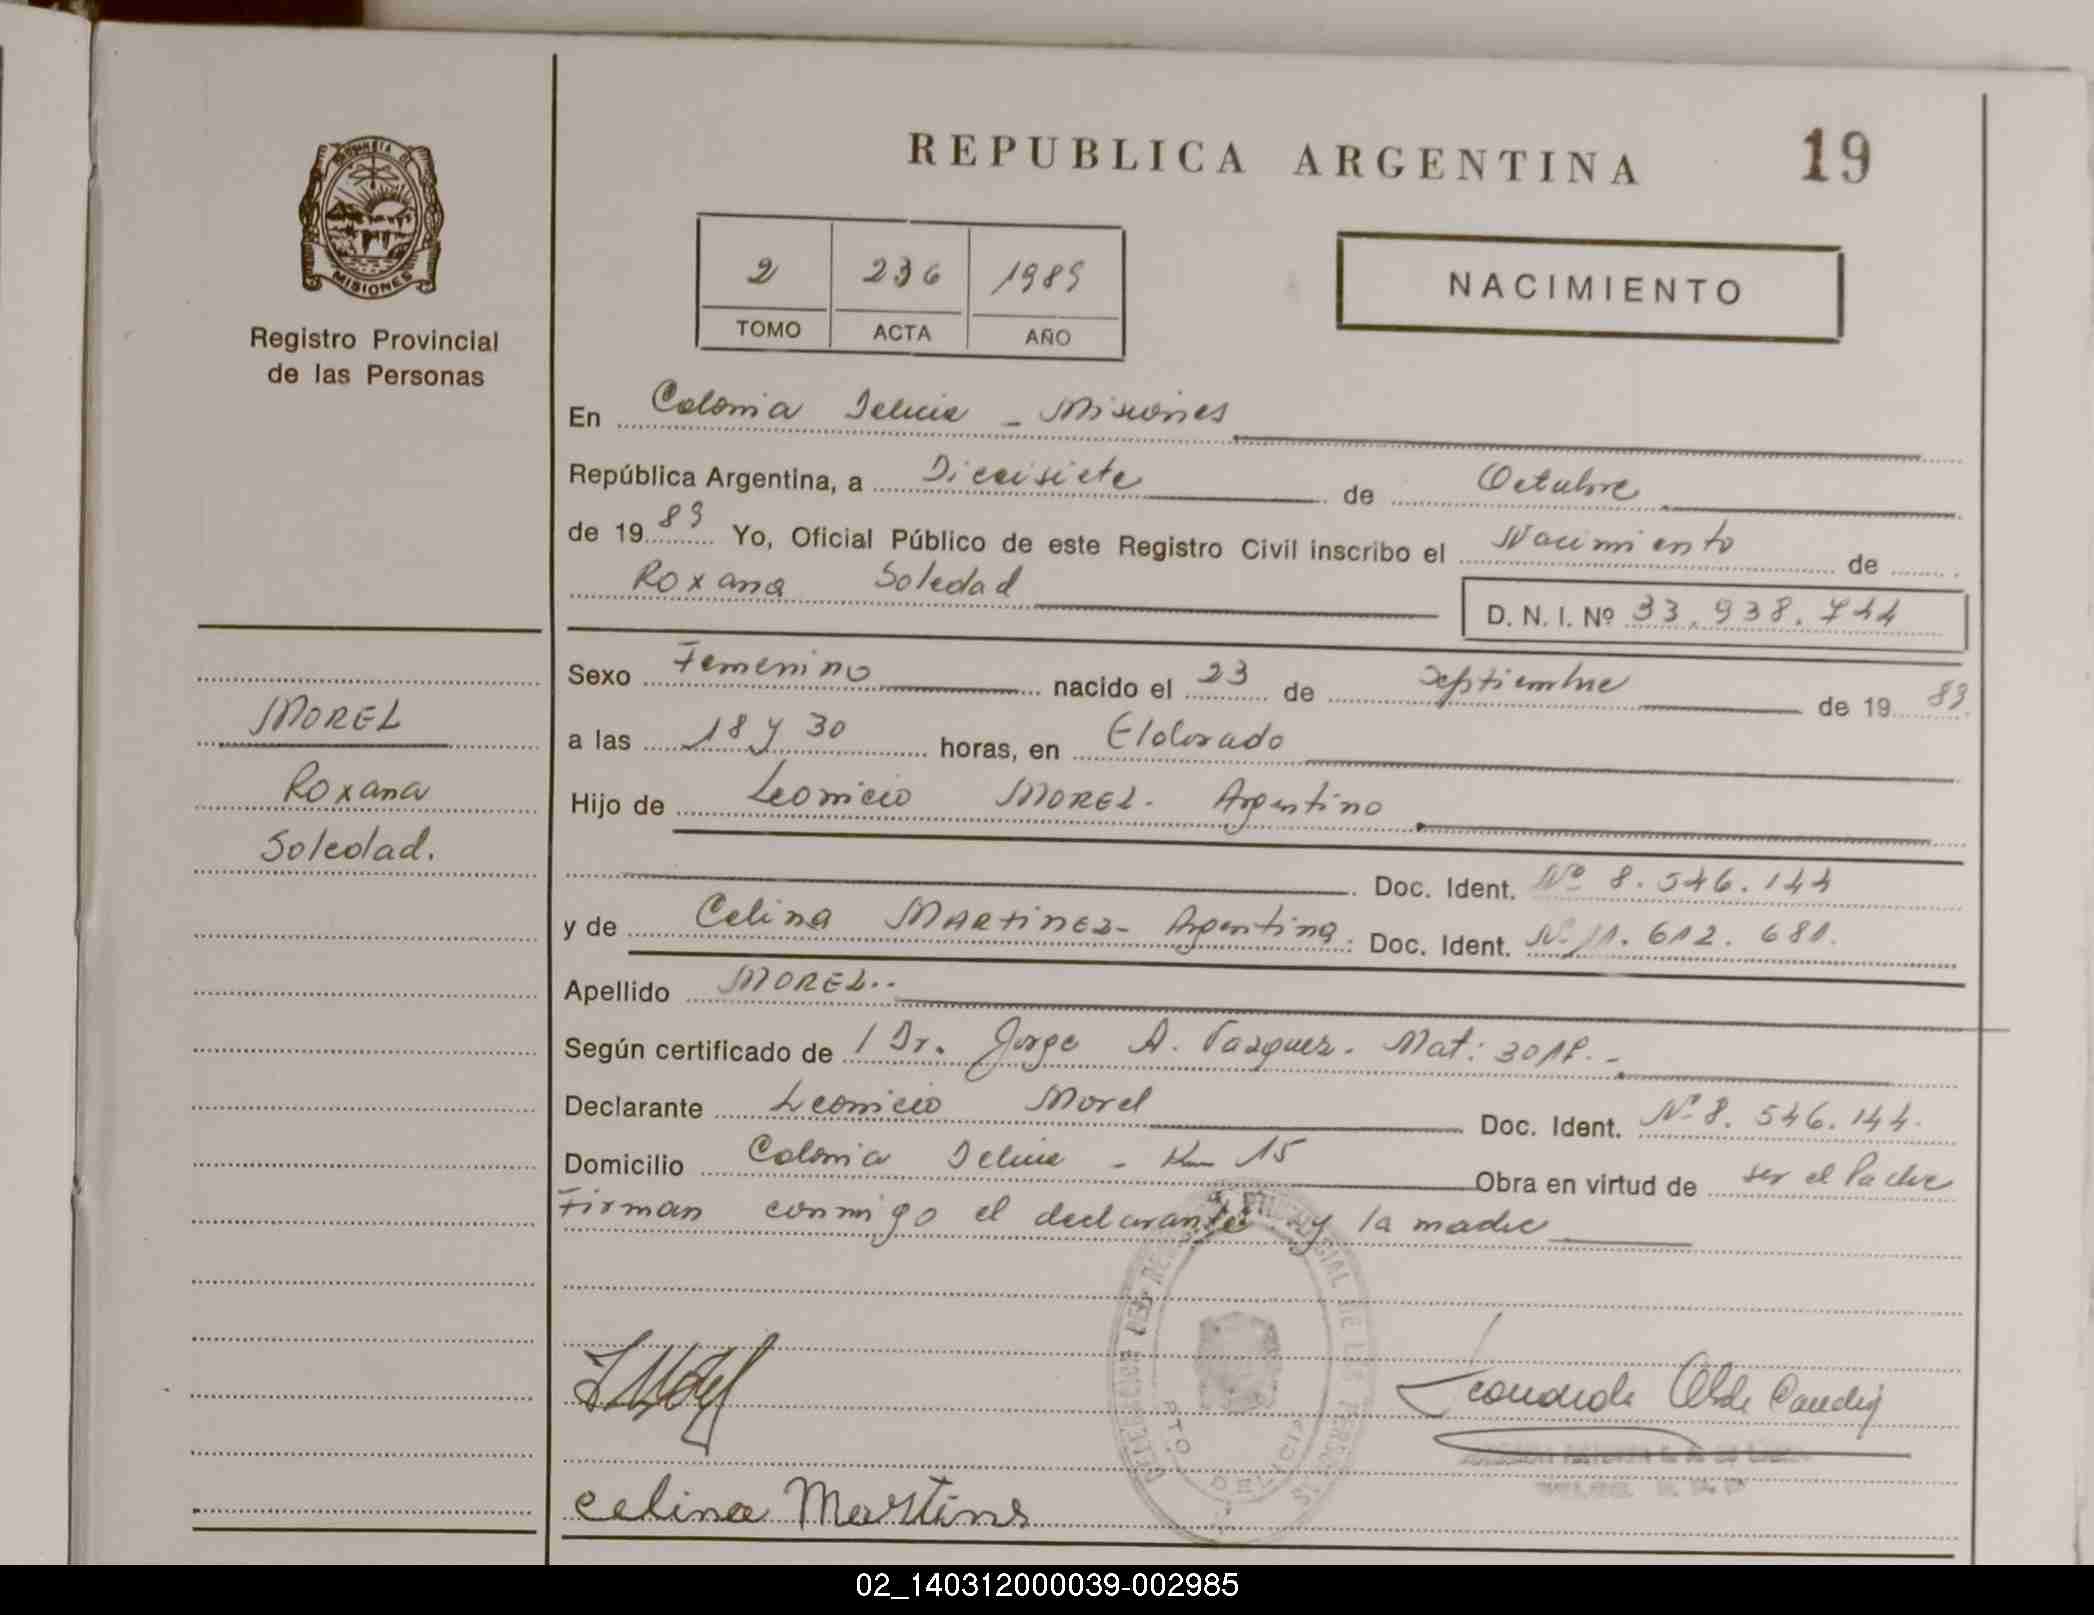 REPUBLICA ARGENTINA
19
PROVINCIA DE
MISIONES
Registro Provincial
de las Personas
2 236 1989
TOMO ACTA AÑO
NACIMIENTO
En Colonia Delicia - Misiones
República Argentina, a Diecisiete de Octubre
de 1989 Yo, Oficial Público de este Registro Civil inscribo el Nacimiento de
Roxana Soledad D. N. I. Nº 33.938.744
Sexo Femenino nacido el 23 de Septiembre de 1989
a las 18 y 30 horas, en Eldorado
Hijo de Leonicio MOREL. Argentino
Doc. Ident. Nº 8.546.144
y de Celina MARTINEZ- Argentina. Doc. Ident. Nº 11.612.681.
Apellido MOREL..
Según certificado de Dr. Jorge A. Vazquez. Mat: .-
Declarante Leonicio Morel Doc. Ident. Nº 8.546.144.
Domicilio Colonia Delicia - Km 15 Obra en virtud de ser el Padre
Firman conmigo el declarante y la madre
MOREL
Roxana
Soledad.
DELEGACION DEL REGISTRO PROVINCIAL DE LAS PERSONAS
PTO. DELICIA
celina Martins
02_140312000039-002985